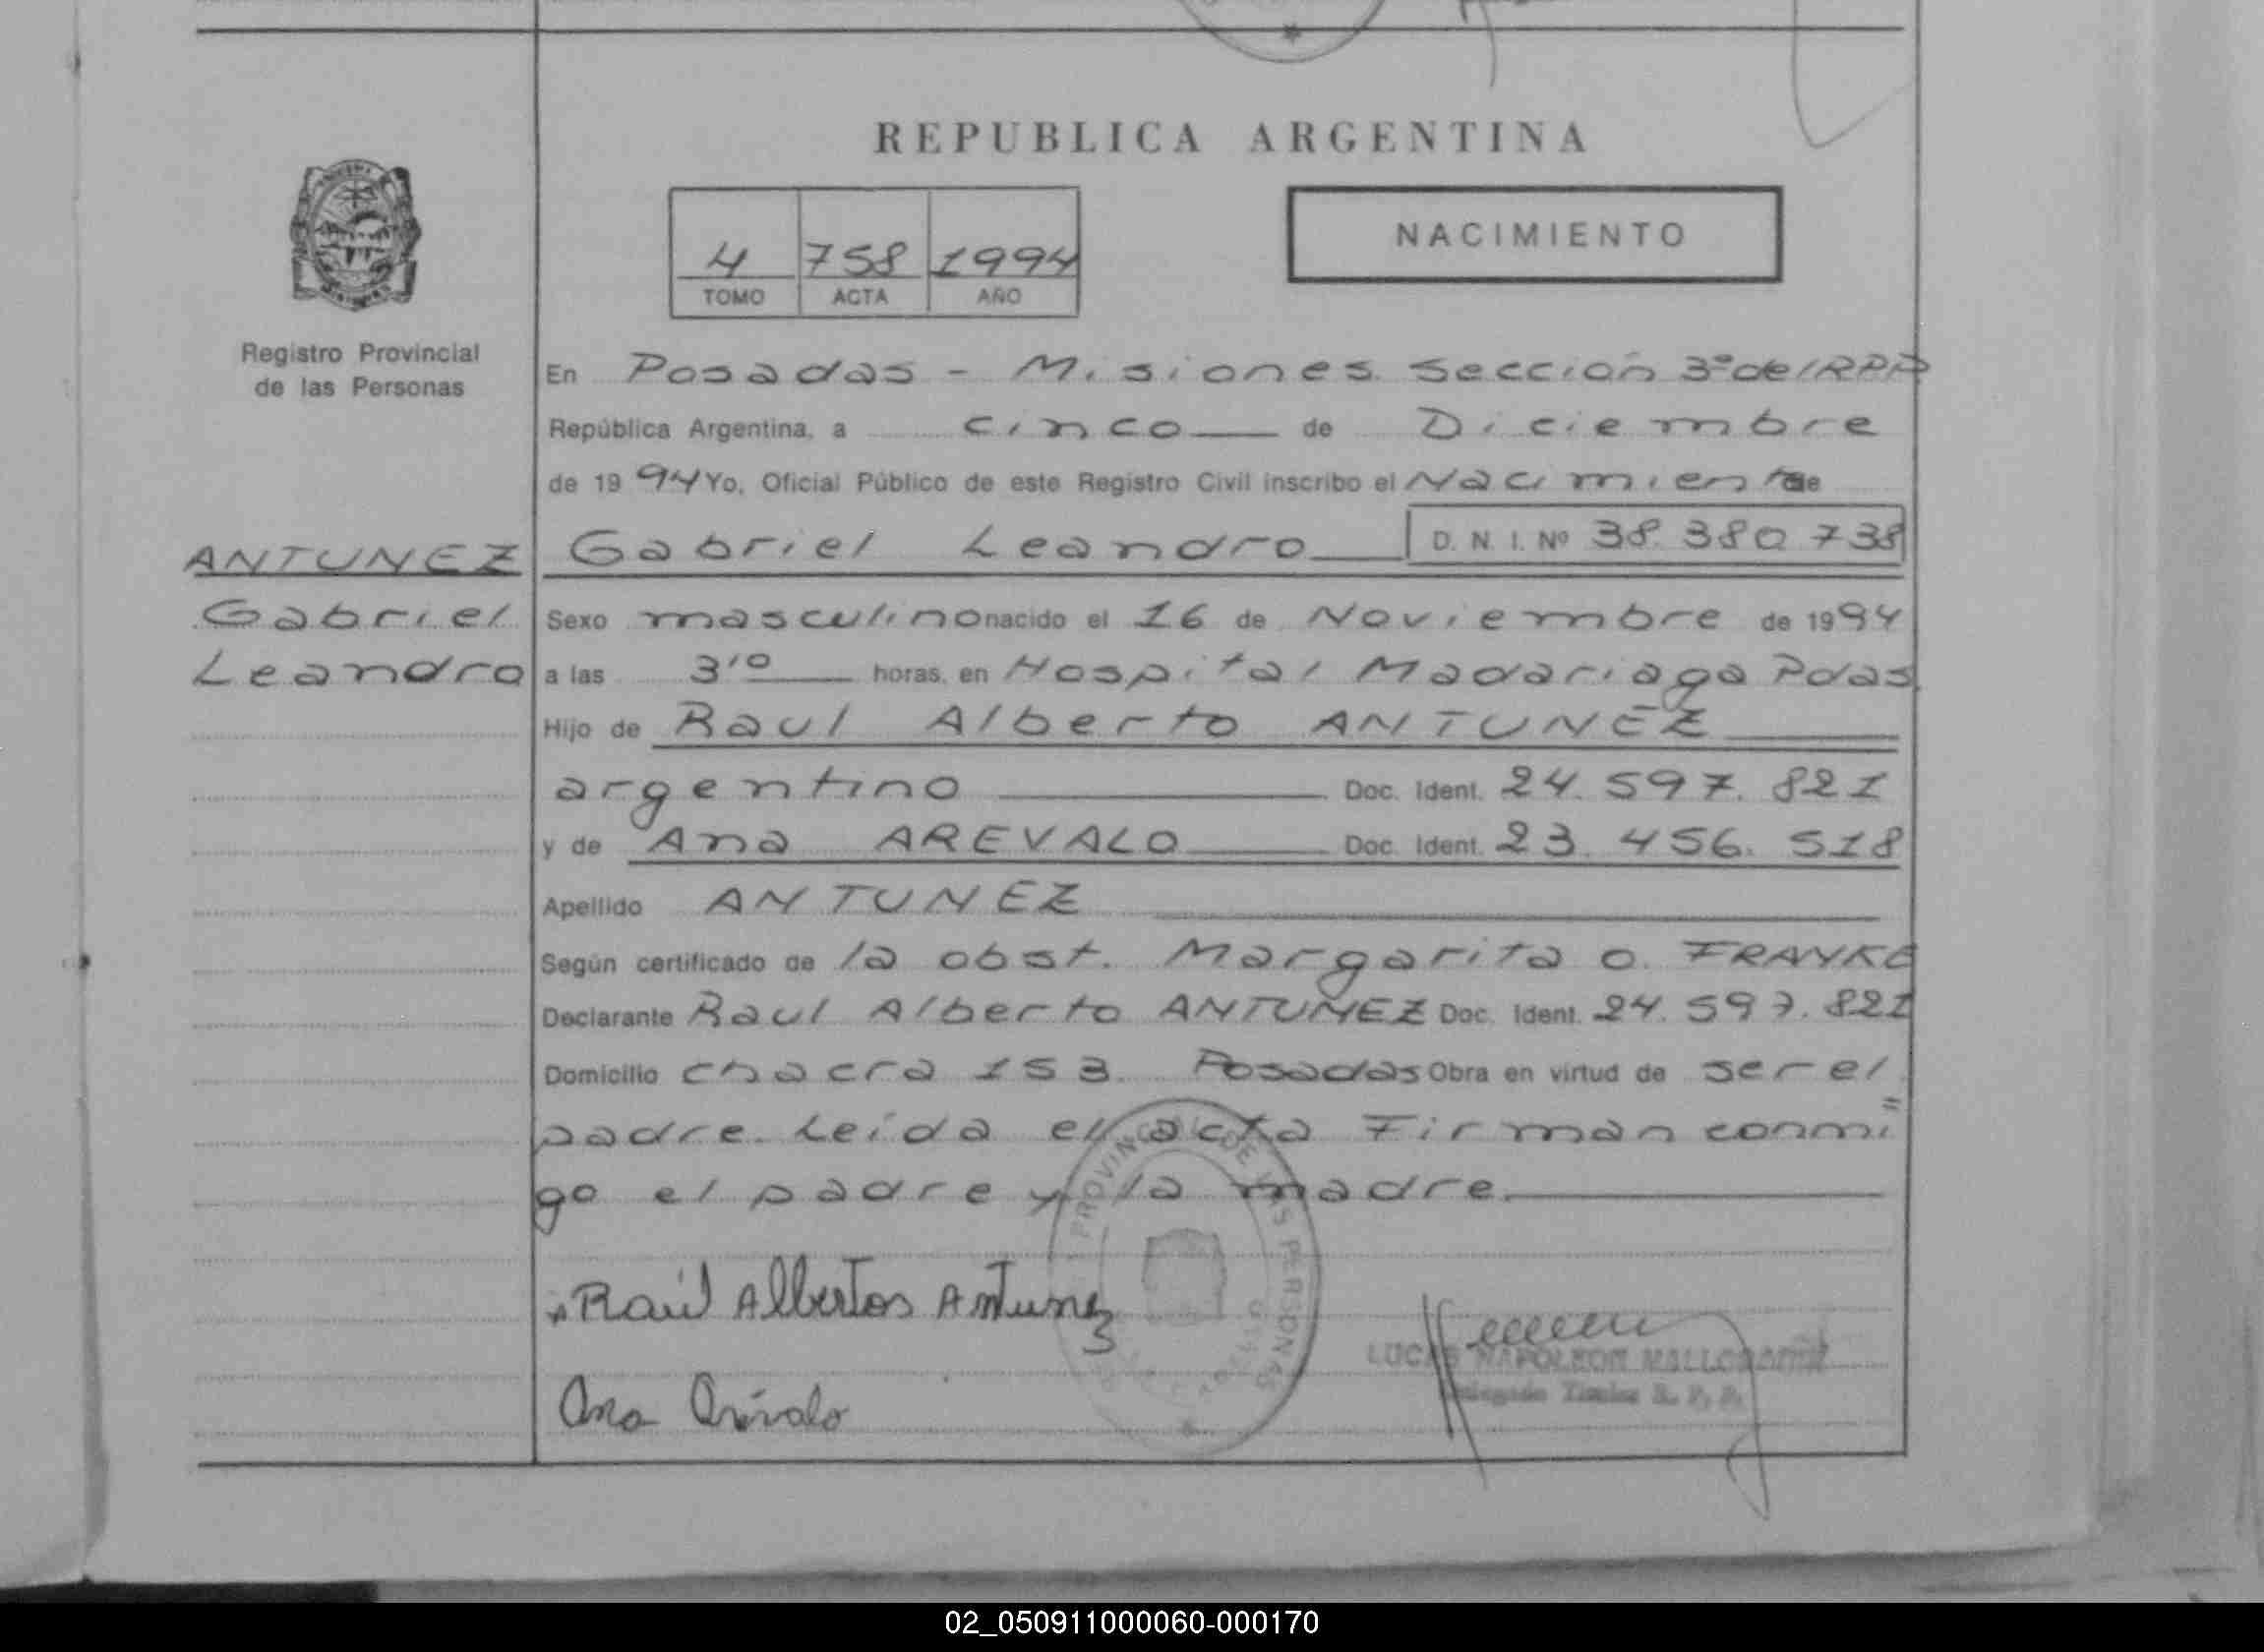 REPUBLICA ARGENTINA
4 758 1994
TOMO ACTA AÑO
NACIMIENTO
Registro Provincial
de las Personas
En Posadas - Misiones. Sección 3º del RPP
República Argentina, a cinco de Diciembre
de 1994 Yo, Oficial Público de este Registro Civil inscribo el Nacimiento de
ANTUNEZ
Gabriel
Leandro
Gabriel Leandro D. N. I. Nº 38.380738
Sexo masculino nacido el 16 de Noviembre de 1994
a las 3'10 horas, en Hospital Madariaga Pdas.
Hijo de Raul Alberto ANTUNEZ
argentino Doc. Ident. 24.597.821
y de Ana AREVALO Doc. Ident. 23.456.518
Apellido ANTUNEZ
Según certificado de la obst. Margarita O. FRANKE
Declarante Raul Alberto ANTUNEZ Doc. Ident. 24.597.821
Domicilio Chacra 153. Posadas Obra en virtud de ser el
padre. Leída el acta Firman conmi=
go el padre y la madre.
Raúl Albertos Antunez
Ana Arévalo
PROVINCIAL DE LAS PERSONAS
LUCAS NAPOLEON
R. P. P.
02_050911000060-000170